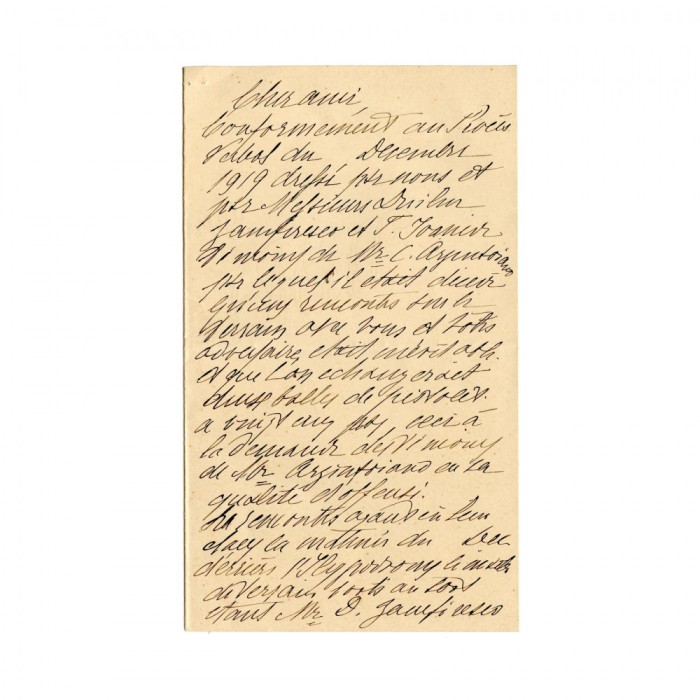 Cher ami,
Conformément au Procès
Verbal du Decembre
1919 dressé par nous et
par Messieurs Duiliu
Zamfiresco et T. Joanid
témoins de Mr. C. Argintoiano
par lequel il était décidé
qu'une rencontre sur le
terrain entre vous et votre
adversaire était inévitable
et que l'on échangerait
deux balles de pistolet
a vingt cinq pas, ceci à
la demande des témoins
de Mr Argintoiano en sa
qualité d'offensé.
La rencontre ayant eu lieu
la matinée du Dec
derière l'Hypodrome le
directeur au sort
étant Mr D. Zamfiresco